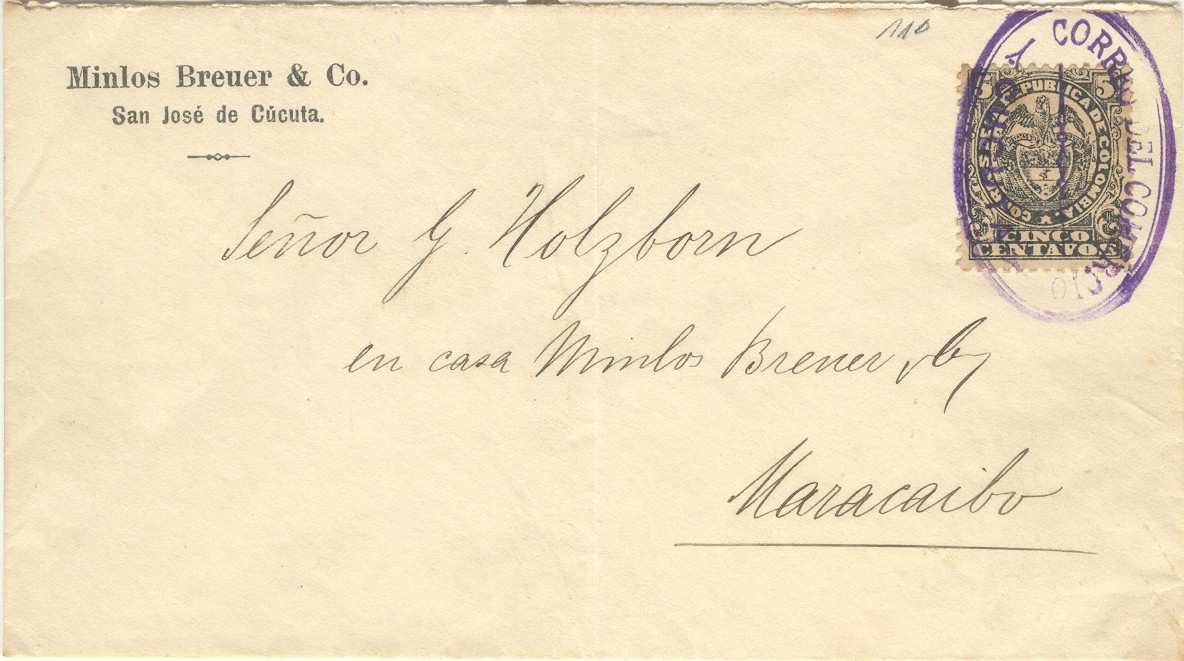 110
Minlos Breuer & Co.
San José de Cúcuta.
CORREO DEL COMERCIO
5 5
CORREOS DE LA REPUBLICA DE COLOMBIA
CINCO
CENTAVOS
Señor G. Holzborn
en casa Minlos Breuer & Cº
Maracaibo